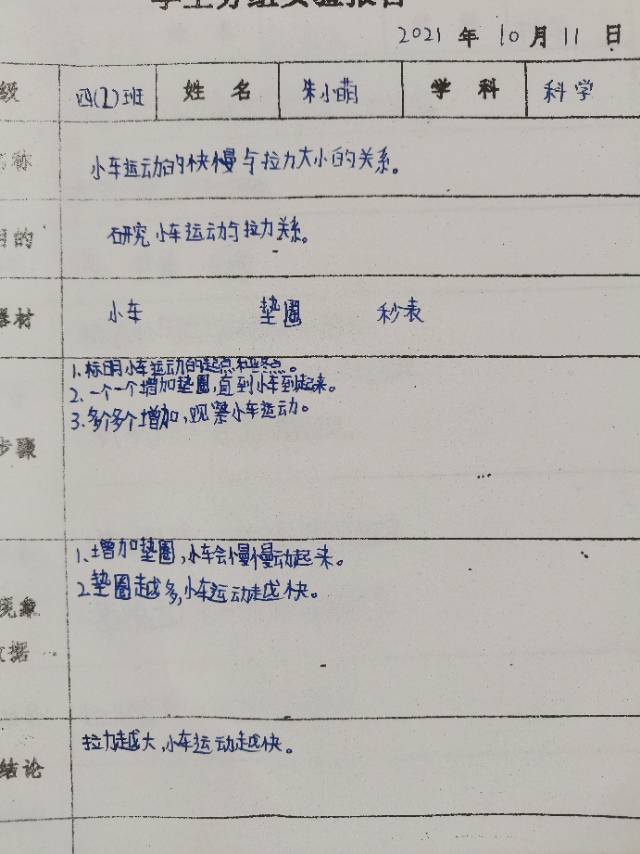 学生分组实验报告
2021 年 10 月 11 日
级 四(2)班 姓 名 朱小萌 学 科 科学
名称 小车运动的快慢与拉力大小的关系。
目的 研究小车运动与拉力关系。
器材 小车 垫圈 秒表
1. 标明小车运动的起点和终点。
2. 一个一个增加垫圈,直到小车到起来。
3. 多个多个增加,观察小车运动。
步骤
1. 增加垫圈,小车会慢慢动起来。
2. 垫圈越多,小车运动越快。
现象
数据
结论 拉力越大,小车运动越快。